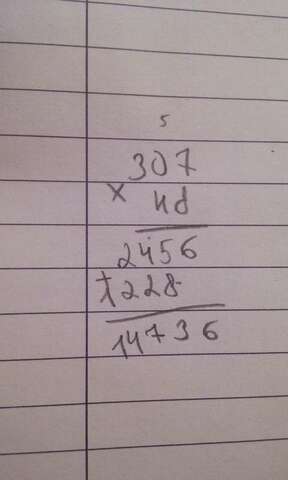 5
307
× 48
2456
+1228
14736